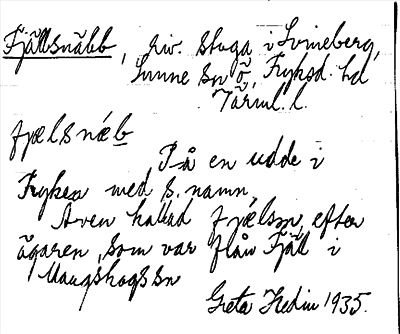 Fjällsnäbb, riv. stuga i Svineberg,
Sunne sn Ö, Fryksd. hd
Värml. l.
fjælsnæb
På en udde i
Fryken med s. namn.
Även kallad fjælsn, efter
ägaren, som var från Fjäll i
Mangskogs sn
Greta Hedin 1935.